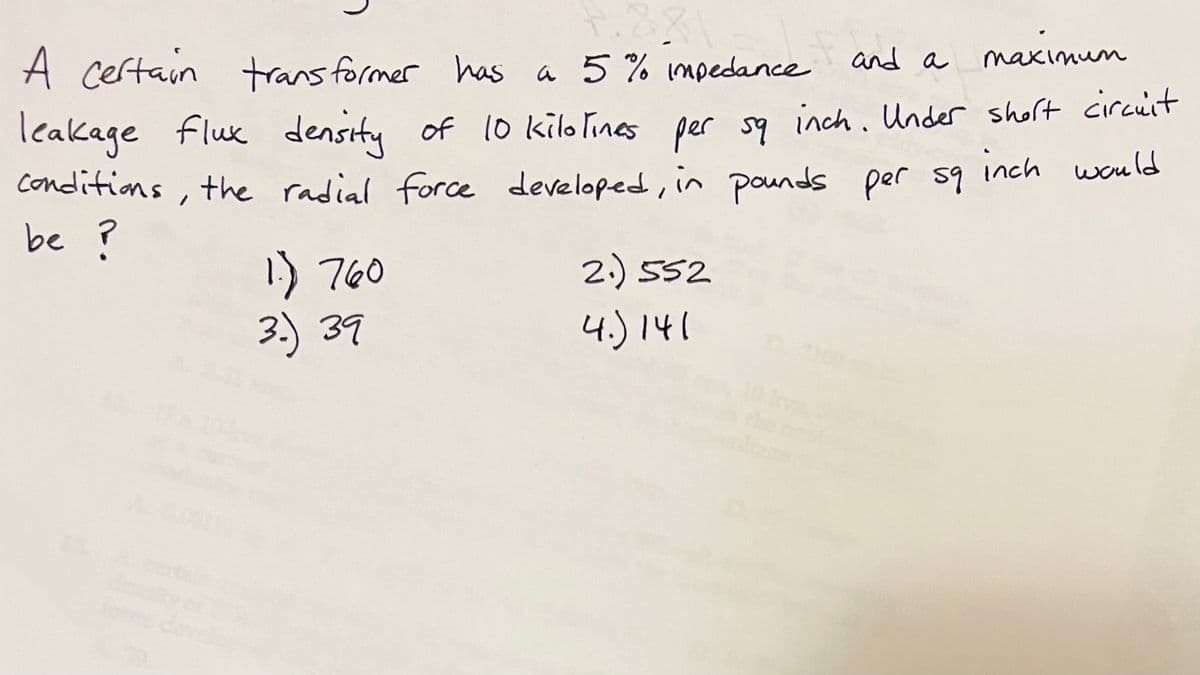 A certain transformer has a 5% impedance and a maximum
leakage flux density of 10 kilolines per sq inch. Under short circuit
conditions, the radial force developed, in pounds per sq inch would
be ?
1.) 760 2.) 552
3.) 39 4.) 141